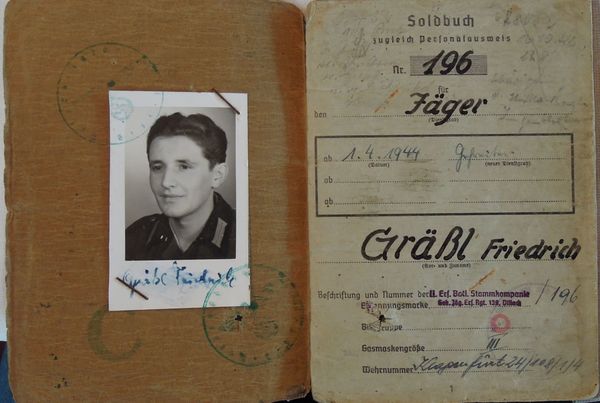 Gräßl Friedrich
Soldbuch
zugleich Personalausweis
Nr. 196
für
den Jäger
(Dienstgrad)
ab 1.4.1944 Gefreiter
(Datum) (neuer Dienstgrad)
ab
ab
Gräßl Friedrich
(Vor- und Zuname)
Beschriftung und Nummer der II. Ers. Batl. Stammkompanie / 196
Erkennungsmarke Geb. Jäg. Ers. Rgt. 139,
Blutgruppe
Gasmaskengröße III
Wehrnummer Klagenfurt 24/108/1/4
1